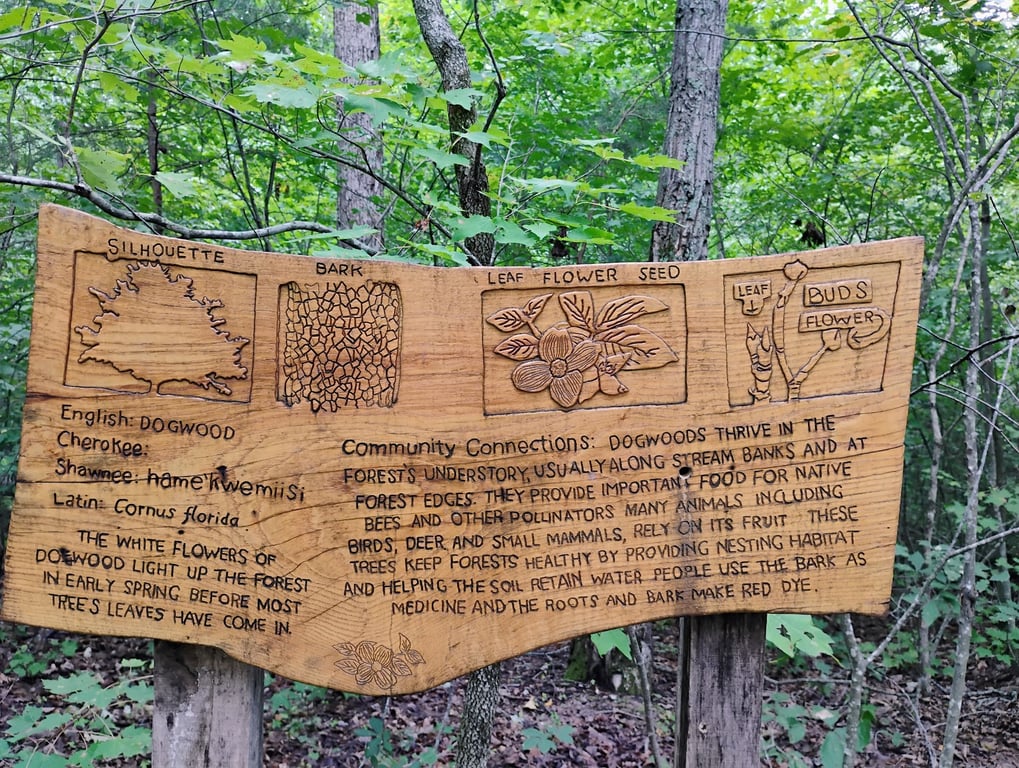 SILHOUETTE
BARK
LEAF FLOWER SEED
LEAF
BUDS
FLOWER
English: DOGWOOD
Cherokee:
Shawnee: hame'kwemiisi
Latin: Cornus florida
THE WHITE FLOWERS OF
DOGWOOD LIGHT UP THE FOREST
IN EARLY SPRING BEFORE MOST
TREES LEAVES HAVE COME IN.
Community Connections: DOGWOODS THRIVE IN THE
FOREST'S UNDERSTORY, USUALLY ALONG STREAM BANKS AND AT
FOREST EDGES. THEY PROVIDE IMPORTANT FOOD FOR NATIVE
BEES AND OTHER POLLINATORS MANY ANIMALS INCLUDING
BIRDS, DEER AND SMALL MAMMALS, RELY ON ITS FRUIT THESE
TREES KEEP FORESTS HEALTHY BY PROVIDING NESTING HABITAT
AND HELPING THE SOIL RETAIN WATER PEOPLE USE THE BARK AS
MEDICINE AND THE ROOTS AND BARK MAKE RED DYE.